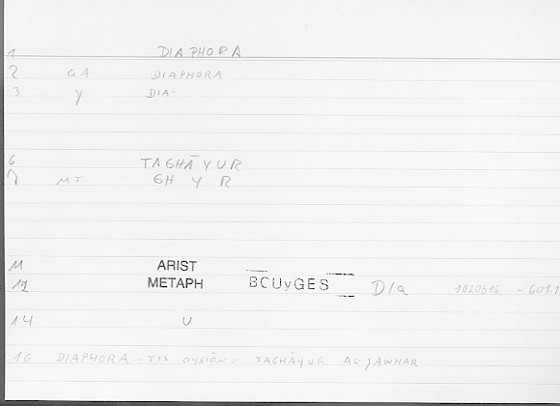 1 DIAPHORA
2 GA DIAPHORA
3 y DIA-
6 TAGHĀYUR
7 MT GH Y R
11 ARIST
12 METAPH BOUyGES D/a
14 U
16 DIAPHORA - TIS TAGHĀYUR AL JAWHAR